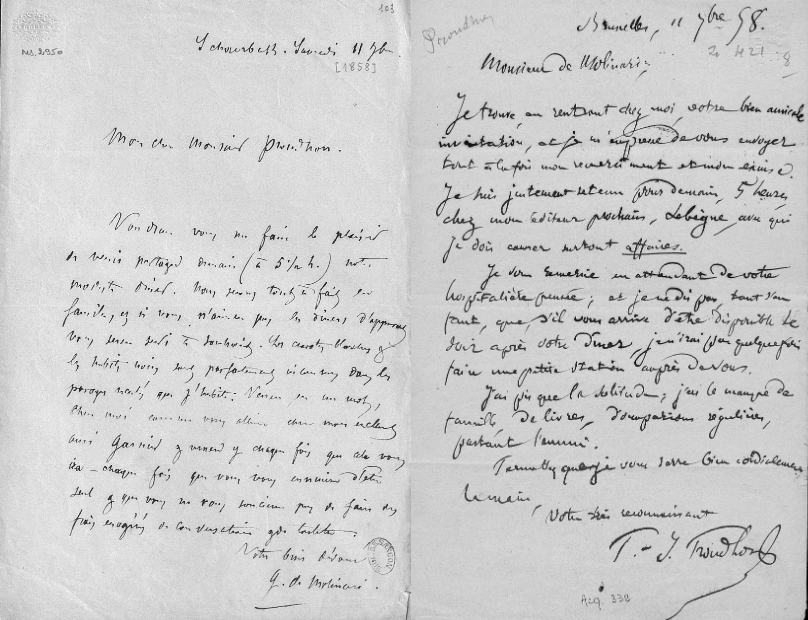 103
Ms. 2950
Schaerbeek. Samedi 11 7bre
[1858]
Mon cher Monsieur Proudhon.
Voudriez vous me faire le plaisir
de venir partager demain (à 5½ h.) notre
modeste dîner. Nous serons tout à fait en
famille, et si vous n'aimez pas les dîners d'apparat
vous serez servi à souhait. Les
les habits noirs sont parfaitement inconnus dans les
parages que j'habite. Venez, en un mot,
chez moi comme vous alliez chez mon excellent
ami Garnier et venez y chaque fois que cela vous
ira - chaque fois que vous vous ennuierez d'être
seul et que vous ne vous soucierez pas de faire des
frais exagérés de conversation et de toilette.
Votre bien dévoué
G. de Molinari.
Proudhon
Bruxelles, 11 7bre 58.
Monsieur de Molinari,
Je trouve, en rentrant chez moi, votre bien amicale
invitation, et je m'empresse de vous envoyer
tout à la fois mon remerciement et mon excuse.
Je suis justement retenu pour demain, 5 heures
chez mon éditeur prochain, Lebègue, avec qui
je dois causer surtout affaires.
Je vous remercie en attendant de votre
hospitalière pensée; et je ne dis pas, tant s'en
faut, que, s'il vous arrive d'être disponible le
soir après votre dîner, je n'irai pas quelquefois
faire une petite station auprès de vous.
J'ai pis que la solitude; j'ai le manque de
famille, de livres, d'occupations régulières,
partant l'ennui.
Permettez que je vous serre bien cordialement
la main,
Votre très reconnaissant
P.-J. Proudhon
Acq. 338